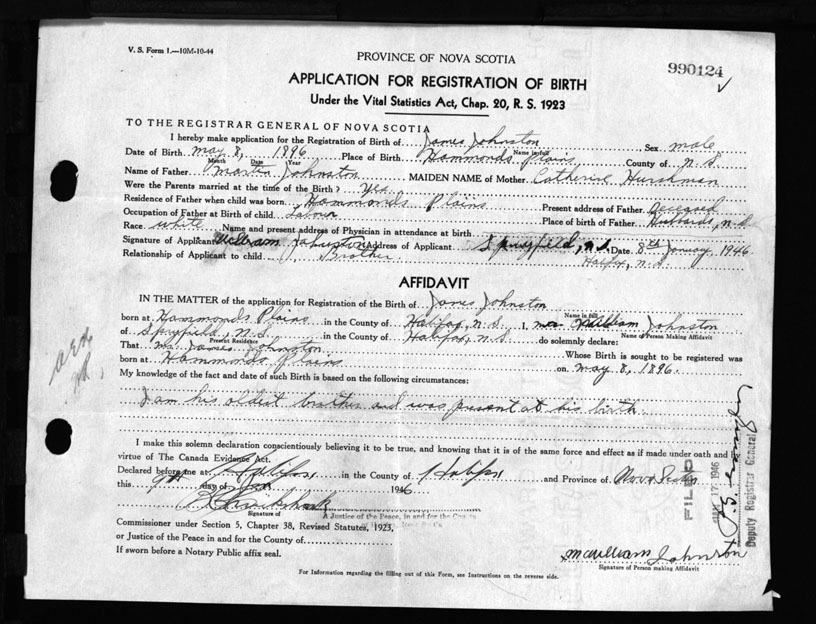 V. S. Form 1.—10M-10-44
PROVINCE OF NOVA SCOTIA
990124
APPLICATION FOR REGISTRATION OF BIRTH
Under the Vital Statistics Act, Chap. 20, R. S. 1923
TO THE REGISTRAR GENERAL OF NOVA SCOTIA
I hereby make application for the Registration of Birth of James Johnston Sex male
Name in full
Date of Birth May 8, 1896 Place of Birth Hammonds Plains County of N.S.
Month Date Year
Name of Father Martin Johnston MAIDEN NAME of Mother Catherine Hurshman
Were the Parents married at the time of the Birth? Yes
Residence of Father when child was born Hammonds Plains Present address of Father Deceased
Occupation of Father at Birth of child Labour Place of birth of Father Hubbards, N.S.
Race white Name and present address of Physician in attendance at birth
Signature of Applicant William Johnston Address of Applicant Spryfield, N.S. Date 8th January 1946
Relationship of Applicant to child Brother Halifax, N.S.
AFFIDAVIT
IN THE MATTER of the application for Registration of the Birth of James Johnston
Name in full
born at Hammonds Plains in the County of Halifax, N.S. I, William Johnston
Name of Person Making Affidavit
of Spryfield, N.S. in the County of Halifax, N.S. do solemnly declare:
Present Residence
That Mr. James Johnston Whose Birth is sought to be registered was
born at Hammonds Plains on May 8, 1896.
My knowledge of the fact and date of such Birth is based on the following circumstances:
I am his oldest brother and was present at his birth.
I make this solemn declaration conscientiously believing it to be true, and knowing that it is of the same force and effect as if made under oath and in
virtue of The Canada Evidence Act.
Declared before me at Halifax in the County of Halifax and Province of Nova Scotia
this 9th day of Jan 1946
Signature of
A Justice of the Peace, in and for the
Commissioner under Section 5, Chapter 38, Revised Statutes, 1923,
or Justice of the Peace in and for the County of
If sworn before a Notary Public affix seal.
William Johnston
Signature of Person making Affidavit
For Information regarding the filling out of this Form, see Instructions on the reverse side.
FILED
1946
Deputy Registrar General